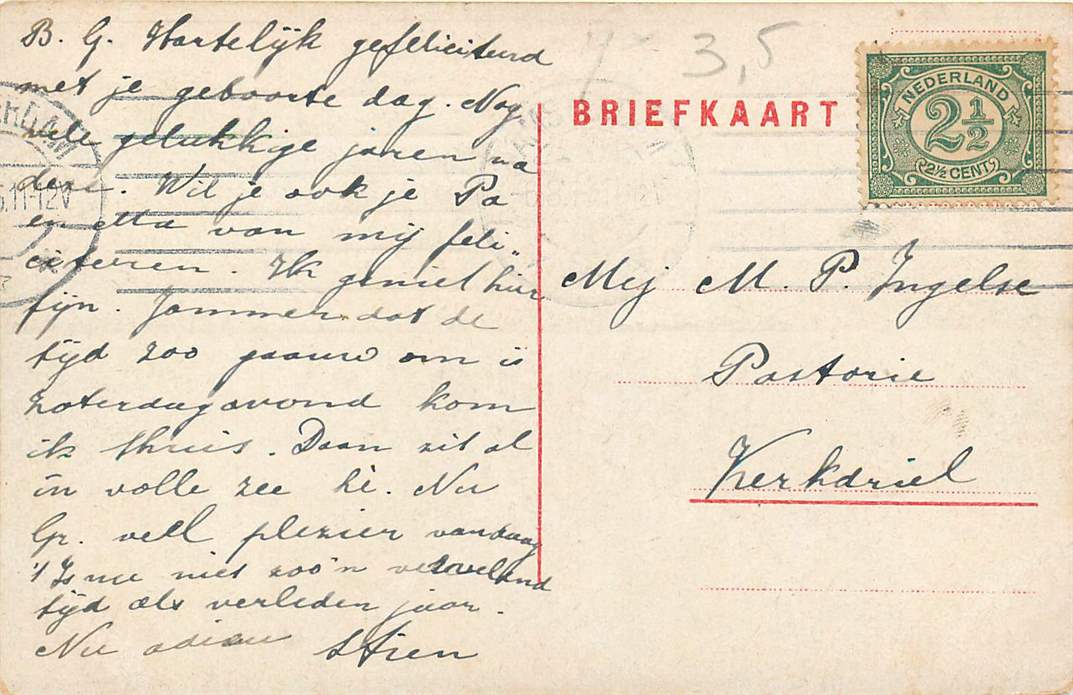 B. G. Hartelijk gefeliciteerd
met je geboorte dag. Nog
vele gelukkige jaren na
deze. Wil je ook je Pa
en van mij feli„
citeren. Ik geniet hier
fijn. Jammer dat de
tijd zoo gaauw om is
Zaterdagavond kom
ik thuis. Daan zit al
in volle zee hè. Nu
Gr. veel plezier vandaag
't Is nu niet zoo'n
tijd als verleden jaar.
Nu adieu Stien
3,5
BRIEFKAART
NEDERLAND
2½
2½ CENT
Mej M. P. Ingelse
Pastorie
Kerkdriel
11-12V